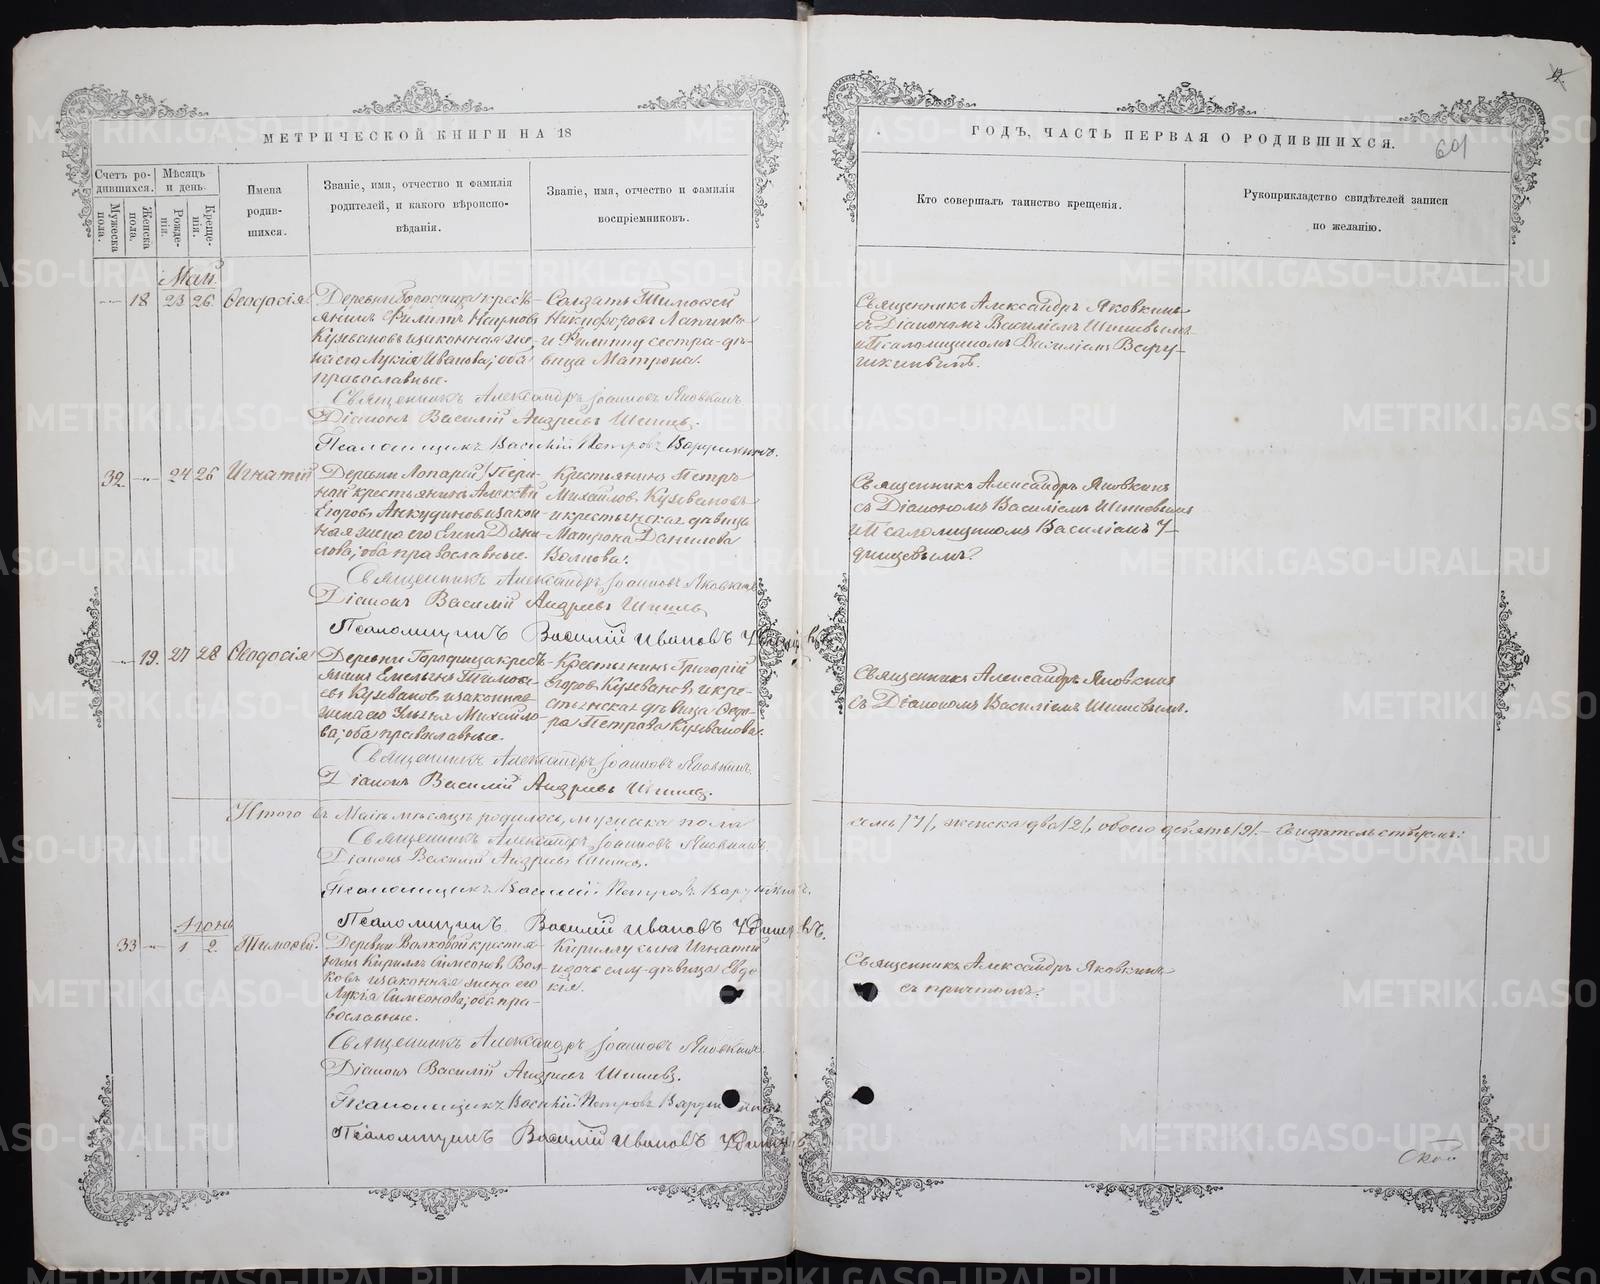 МЕТРИЧЕСКОЙ КНИГИ НА 18
Счетъ родившихся.
Мѣсяцъ и день.
Мужеска пола.
Женска пола.
Рожденія.
Крещенія.
Имена родившихся.
Званіе, имя, отчество и фамилія
родителей, и какого вѣроиспо-
вѣданія.
Званіе, имя, отчество и фамилія
воспріемниковъ.
Май.
18 23 26 Ѳеодосія
Деревни крестъ-
янинъ Филиппъ Наумовъ
Кузевановъ и законная же-
на его Лукія Иванова; оба
православные.
Солдатъ Тимоѳей
Никифоровъ Лапинъ
и Филиппу сестра дѣ-
вица Матрона.
Священникъ Александръ Іоанновъ Яковкинъ
Діаконъ Василій Андреевъ Шишевъ.
Псаломщикъ Василій Петровъ
32 24 26 Игнатій
Деревни Лопарій
ной крестьянинъ Алексѣй
Егоровъ Анкудиновъ и закон-
ная жена его Елена Дани-
лова; оба православные.
Крестьянинъ Петръ
Михайловъ Кузевановъ
и крестьянская дѣвица
Матрона Данилова
Волкова.
Священникъ Александръ Іоанновъ Яковкинъ
Діаконъ Василій Андреевъ Шишевъ
Псаломщикъ Василій Ивановъ Удинцевъ
19. 27 28 Ѳеодосія
Деревни Городища кресть-
янинъ Емельянъ Тимоѳе-
евъ Кузевановъ и законная
жена его Ульяна Михайло-
ва; оба православные.
Крестьянинъ Григорій
Егоровъ Кузевановъ и кре-
стьянская дѣвица Ѳедо-
ра Петрова Кузеванова.
Священникъ Александръ Іоанновъ Яковкинъ.
Діаконъ Василій Андреевъ Шишевъ.
Итого въ Маѣ мѣсяцѣ родилось, мужеска пола
Священникъ Александръ Іоанновъ Яковкинъ.
Діаконъ Василій Андреевъ Шишевъ.
Псаломщикъ Василій Петровъ
Псаломщикъ Василій Ивановъ Удинцевъ.
Іюнь
33 1 2 Тимоѳей.
Деревни Волковой крестья-
нинъ Кириллъ Симеоновъ Вол-
ковъ и законная жена его
Лукія Симеонова; оба пра-
вославные.
Кириллу сынъ Игнатій
и дочь ему дѣвица Евдо-
кія.
Священникъ Александръ Іоанновъ Яковкинъ
Діаконъ Василій Андреевъ Шишевъ.
Псаломщикъ Василій Петровъ
Псаломщикъ Василій Ивановъ Удинцевъ
ГОДЪ, ЧАСТЬ ПЕРВАЯ О РОДИВШИХСЯ.
Кто совершалъ таинство крещенія.
Рукоприкладство свидѣтелей записи
по желанію.
Священникъ Александръ Яковкинъ
съ Діакономъ Василіемъ Шишевымъ
и Псаломщикомъ Василіемъ
Священникъ Александръ Яковкинъ
съ Діакономъ Василіемъ Шишевымъ
и Псаломщикомъ Василіемъ У-
динцевымъ.
Священникъ Александръ Яковкинъ
съ Діакономъ Василіемъ Шишевымъ.
семь /7/, женска два /2/, обоего девять /9/. – Свидѣтельствуемъ:
Священникъ Александръ Яковкинъ
съ причтомъ.
METRIKI.GASO-URAL.RU